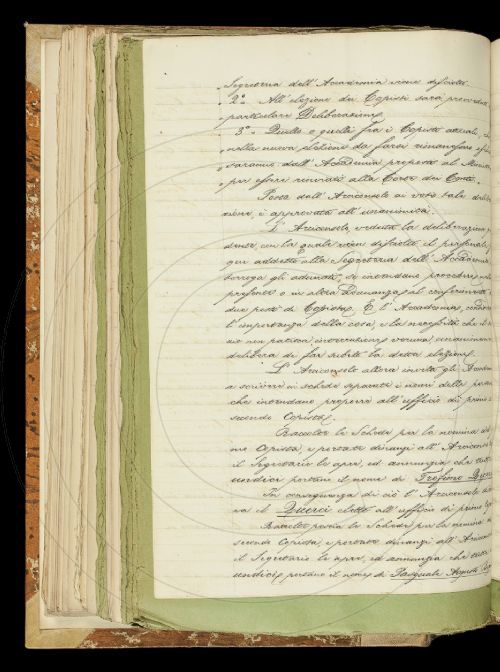 „ Segreteria dell'Accademia viene disciolto.
„ 2° All'elezione dei Copisti sarà provveduto
„ particolare Deliberazione.
„ 3° Quello o quelli fra i Copisti attuali, che
„ nella nuova elezione da farsi rimanessero
„ saranno dall'Accademia proposti al
„ per essere rinviati alla Corte dei Conti.
Posta dall'Arciconsolo ai voti tale
zione, è approvata all'unanimità.
L'Arciconsolo, veduta la deliberazione
dente, con la quale viene disciolto il personale,
qui addetto alla Segreteria dell'Accademia
terroga gli adunati, se intendano procedere, nella
presente o in altra Adunanza, al conferimento
due posti di Copista. E l'Accademia,
l'importanza della cosa, e la necessità che il
zio non patisca interruzione veruna, unanimemente
delibera di far subito la detta elezione.
L'Arciconsolo allora invita gli
a scrivere in schede separate i nomi delle persone
che intendano proporre all'ufficio di primo e
secondo Copista.
Raccolte le Schede per la nomina del
mo Copista, e portate dinanzi all'Arciconsolo
il Segretario le apre, ed annunzia che tutte
undici portano il nome di Trofimo
In conseguenza di ciò l'Arciconsolo
va il Querci eletto all'ufficio di primo
Raccolte poscia le Schede per la nomina
secondo Copista, e portate dinanzi all'Arciconsolo
il Segretario le apre, ed annunzia che tutte
undici portano il nome di Pasquale Augusto